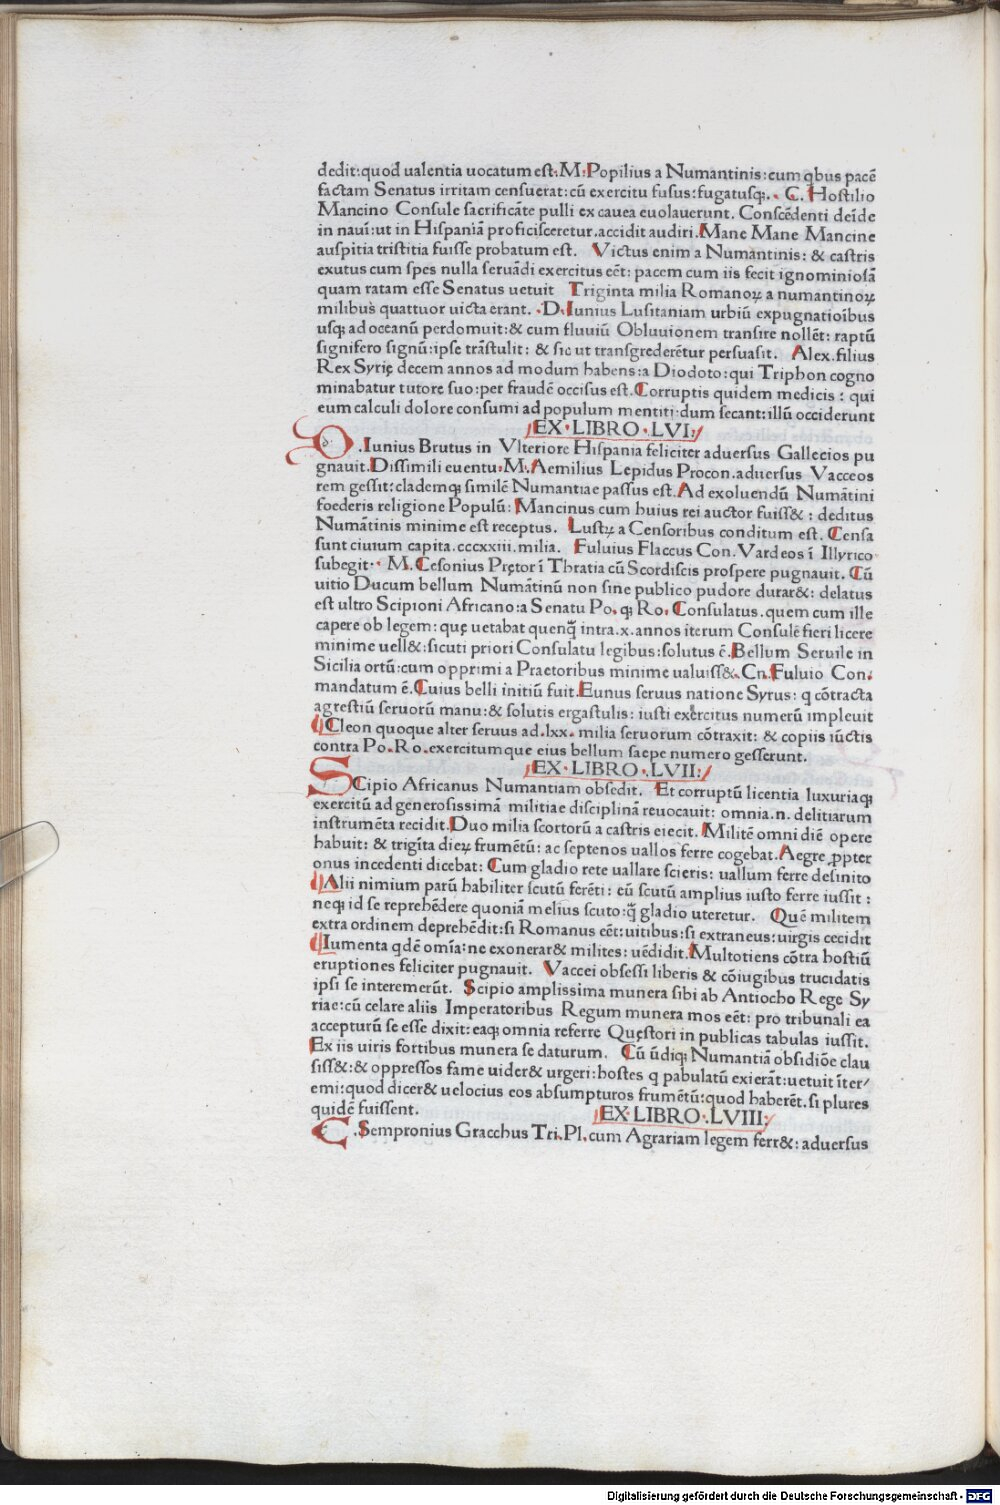 dedit:quod ualentia uocatum est.M.Popilius a Numantinis:cum qbus pacē
factam Senatus irritam censuerat:cū exercitu fusus:fugatusq;. C. Hostilio
Mancino Consule sacrificāte pulli ex cauea euolauerunt. Conscēdenti deīde
in nauī:ut in Hispaniā proficisceretur.accidit audiri.Mane Mane Mancine
auspitia tristitia fuisse probatum est. Victus enim a Numantinis: & castris
exutus cum spes nulla seruādi exercitus eēt: pacem cum iis fecit ignominiosā
quam ratam esse Senatus uetuit Triginta milia Romanoꝝ a numantinoꝝ
milibus quattuor uicta erant. .D.Iunius Lusitaniam urbiū expugnatioībus
usq; ad oceanū perdomuit:& cum fluuiū Obluuionem transire nollēt: raptū
signifero signū:ipse trāstulit: & sic ut transgrederētur persuasit. Alex.filius
Rex Syrię decem annos ad modum habens:a Diodoto:qui Triphon cogno
minabatur tutore suo:per fraudē occisus est.Corruptis quidem medicis: qui
eum calculi dolore consumi ad populum mentiti:dum secant:illū occiderunt
EX.LIBRO.LVI:
D.Iunius Brutus in Vlteriore Hispania feliciter aduersus Gallecios pu
gnauit.Dissimili euentu.M.Aemilius Lepidus Procon.aduersus Vacceos
rem gessit:clademq; similē Numantiae passus est.Ad exoluendū Numātini
foederis religione Populū: Mancinus cum huius rei auctor fuiss&: deditus
Numātinis minime est receptus. Lustꝝ a Censoribus conditum est. Censa
sunt ciuium capita.cccxxiii.milia. Fuluius Flaccus Con.Vardeos ī Illyrico
subegit. M.Cesonius Prętor ī Thratia cū Scordiscis prospere pugnauit. Cū
uitio Ducum bellum Numātinū non sine publico pudore durar&: delatus
est ultro Scipioni Africano:a Senatu Po.q; Ro.Consulatus.quem cum ille
capere ob legem: quę uetabat quenq̄ intra.x.annos iterum Consulē fieri licere
minime uell&:sicuti priori Consulatu legibus:solutus ē.Bellum Seruile in
Sicilia ortū:cum opprimi a Praetoribus minime ualuiss&.Cn.Fuluio Con.
mandatum ē.Cuius belli initiū fuit.Eunus seruus natione Syrus: q cōtracta
agrestiū seruorū manu:& solutis ergastulis: iusti exercitus numerū impleuit
Cleon quoque alter seruus ad.lxx.milia seruorum cōtraxit: & copiis iūctis
contra Po.Ro.exercitumque eius bellum saepe numero gesserunt.
EX.LIBRO.LVII:
SCipio Africanus Numantiam obsedit. Et corruptū licentia luxuriaq;
exercitū ad generosissimā militiae disciplinā reuocauit: omnia.n. delitiarum
instrumēta recidit.Duo milia scortorū a castris eiecit. Militē omni diē opere
habuit: & trigīta dieꝝ frumētū: ac septenos uallos ferre cogebat.Aegre ꝓpter
onus incedenti dicebat: Cum gladio rete uallare scieris: uallum ferre desinito
Alii nimium parū habiliter scutū ferēti: eū scutū amplius iusto ferre iussit:
neq; id se reprehēdere quoniā melius scuto:q̄ gladio uteretur. Quē militem
extra ordinem deprehēdit:si Romanus eēt:uitibus:si extraneus:uirgis cecidit
Iumenta qdē omīa:ne exonerar& milites: uēdidit.Multotiens cōtra hostiū
eruptiones feliciter pugnauit. Vaccei obsessi liberis & cōiugibus trucidatis
ipsi se interemerūt. Scipio amplissima munera sibi ab Antiocho Rege Sy
riae:cū celare aliis Imperatoribus Regum munera mos eēt: pro tribunali ea
accepturū se esse dixit: eaq; omnia referre Quęstori in publicas tabulas iussit.
Ex iis uiris fortibus munera se daturum. Cū ūdiq; Numantiā obsidiōe clau
siss&:& oppressos fame uider& urgeri:hostes q pabulatū exierāt:uetuit īter/
emi:quod dicer& uelocius eos absumpturos frumētū:quod haberēt.si plures
quidē fuissent.
EX.LIBRO.LVIII:
C.Sempronius Gracchus Tri.Pl.cum Agrariam legem ferr&: aduersus
Digitalisierung gefördert durch die Deutsche Forschungsgemeinschaft - DFG